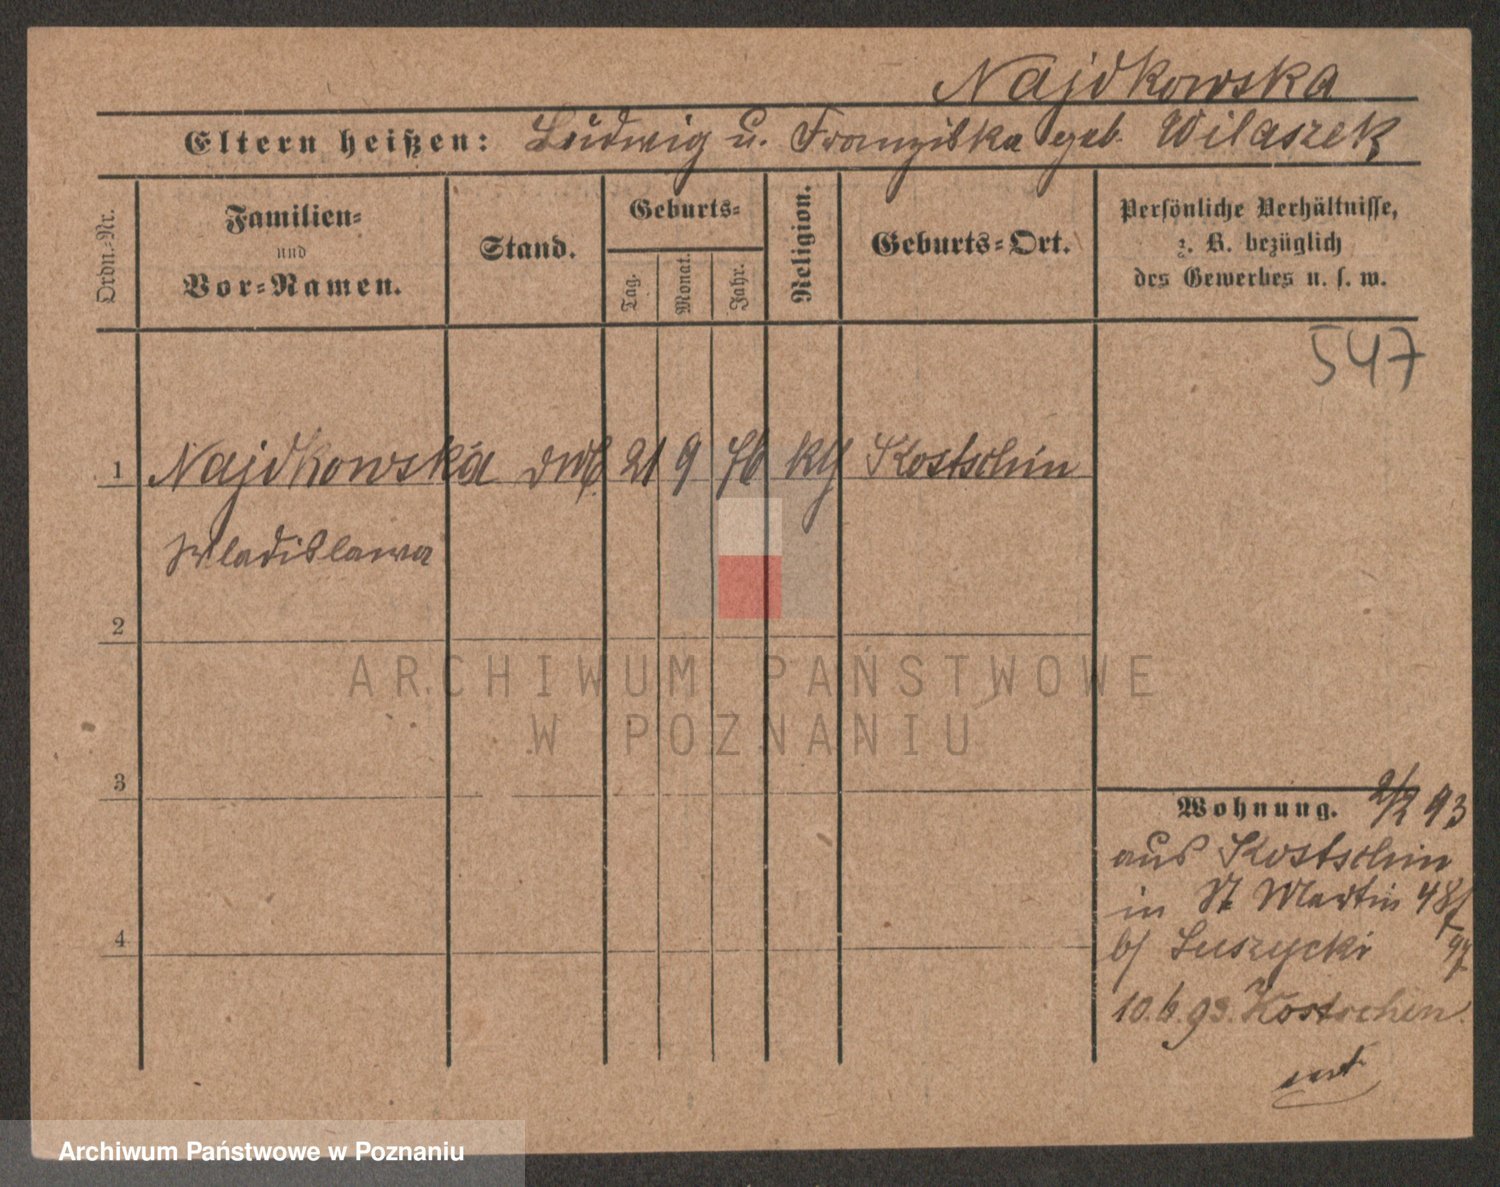 Najdkowska
Eltern heißen: Ludwig u. Franziska geb. Wilaszek
Ordn.-Nr.
Familien-
und
Vor-Namen.
Stand.
Geburts-
Tag.
Monat.
Jahr.
Religion.
Geburts-Ort.
Persönliche Verhältnisse,
z. B. bezüglich
des Gewerbes u. s. w.
547
1 Najdkowska 21 9 76 Kostschin
Wladislawa
2
3
4
Wohnung. 93
aus Kostschin
in St Martin 48/
b/ Luszycki
10.6.93. Kostschin.
ARCHIWUM PAŃSTWOWE
W POZNANIU
Archiwum Państwowe w Poznaniu